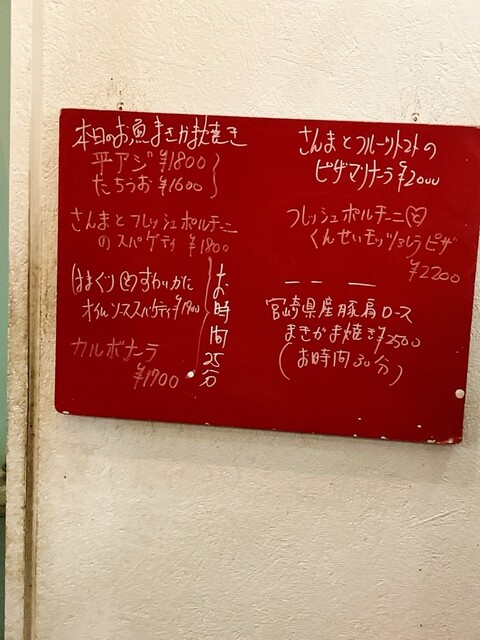 本日のお魚まきかま焼き
平アジ ¥1800
たちうお ¥1600
さんまとフレッシュポルチーニ
のスパゲティ ¥1800
はまぐりとすわいがに
オイルソーススパゲティ ¥1900
カルボナーラ
¥1700
お時間25分
さんまとフルーツトマトの
ピザマリナーラ ¥2000
フレッシュポルチーニと
くんせいモッツァレラピザ
¥2200
宮崎県産豚肩ロース
まきかま焼き ¥2500
(お時間30分)